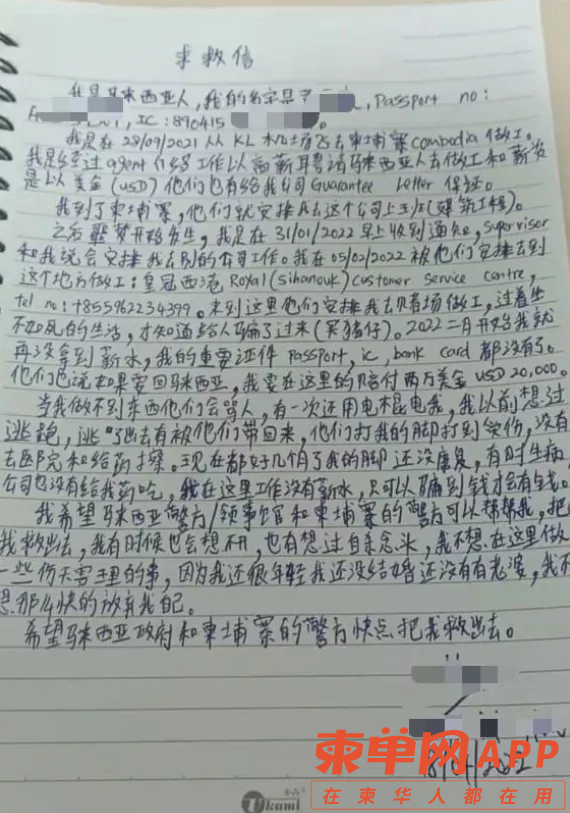 求救信
我是马来西亚人,我的名字是 , Passport no:
, IC: 890415 。
我是在 28/09/2021 从 KL 机场飞去柬埔寨 Cambodia 做工。
我是经过 agent 介绍工作以高薪聘请马来西亚人去做工和薪资
是以美金(USD)他们也有给我公司 Guarantee Letter 保证。
我到了柬埔寨,他们就安排我去这个公司上班(建筑工程)。
之后噩梦开始发生,我是在 31/01/2022 早上收到通知, supervisor
和我说会安排我去别的公司工作。我在 05/02/2022 被他们安排去到
这个地方做工:皇冠西港 Royal (sihanouk) customer service centre,
tel no: +855962234399. 来到这里他们安排我去赌场做工,过着生
不如死的生活,才知道给人骗了过来(买猪仔)。2022二月开始我就
再没拿到薪水,我的重要证件 Passport, ic, bank card 都没有了。
他们也说如果要回马来西亚,我要在这里的赔付两万美金 USD 20,000。
当我做不到东西他们会骂人,有一次还用电棍电我,我以前想过
逃跑,逃了出去有被他们带回来,他们打我的脚打到受伤,没有
去医院和给药擦。现在都好几个月了我的脚还没康复,有时生病
公司也没有给我药吃,我在这里工作没有薪水,只可以骗到钱才会有钱。
我希望马来西亚警方/领事馆和柬埔寨的警方可以帮帮我,把
我救出去,我有时候也会想不开,也有想过自杀念头,我不想在这里做
一些伤天害理的事,因为我还很年轻我还没结婚还没有有老婆,我不
想那么快的放弃我自己。
希望马来西亚政府和柬埔寨的警方快点把我救出去。
柬单网APP
在柬华人都在用
Ukami